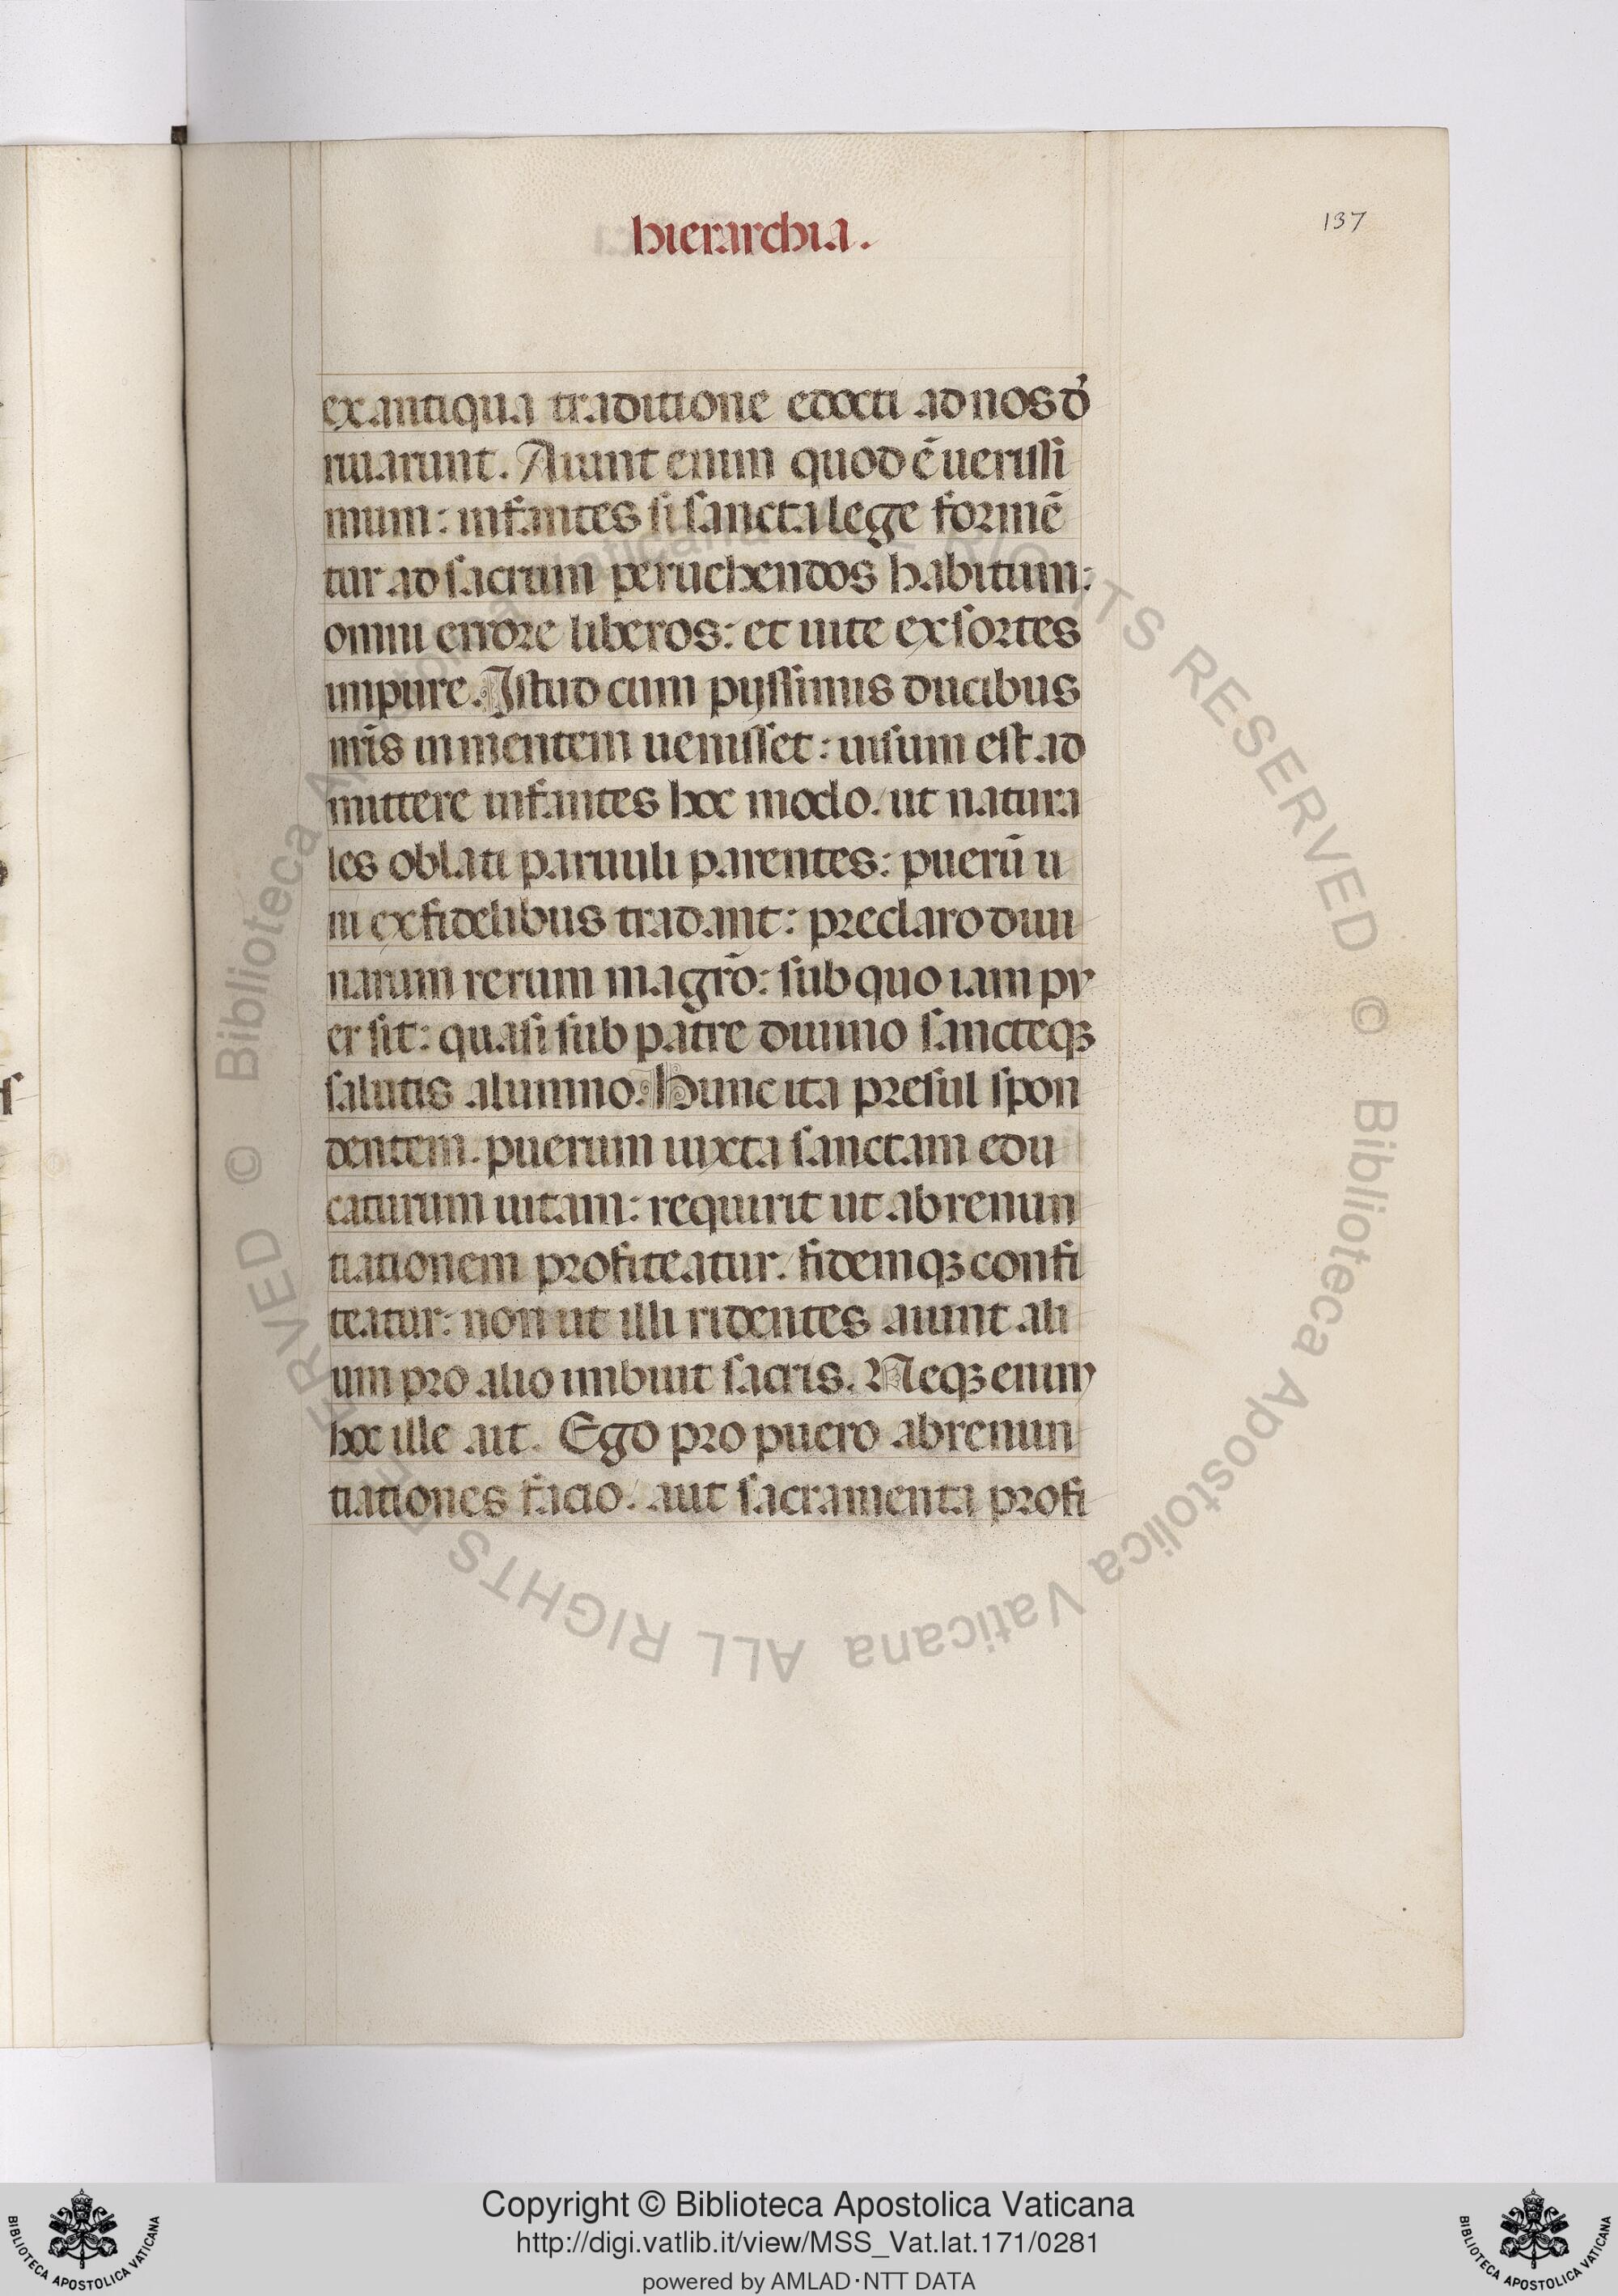 hierarchia.
137
ex antiqua traditione edocti ad nos d'
riuarunt. Aiunt enim quod ē uerissi
mum: infantes si sancta lege formē
tur ad sacrum peruehendos habitum:
omni errore liberos: et uite exsortes
impure. Istud cum pyssimis ducibus
nr̄is in mentem uenisset: uisum est ad
mittere infantes hoc modo. ut natura
les oblati paruuli parentes: puerū u
ni ex fidelibus tradant: preclaro diui
narum rerum magrō: sub quo iam pu
er sit: quasi sub patre diuino sancteqʒ
salutis alumno. Hunc ita presul spon
dentem. puerum iuxta sanctam edu
caturum uitam: requirit ut abrenun
tiationem profiteatur. fidemqʒ confi
teatur: non ut illi ridentes aiunt ali
um pro alio imbuit sacris. Neqʒ enim
hoc ille ait. Ego pro puero abrenun
tiationes facio. aut sacramenta profi
© Biblioteca Apostolica Vaticana ALL RIGHTS RESERVED
Copyright © Biblioteca Apostolica Vaticana
http://digi.vatlib.it/view/MSS_Vat.lat.171/0281
powered by AMLAD·NTT DATA
BIBLIOTECA APOSTOLICA VATICANA
BIBLIOTECA APOSTOLICA VATICANA